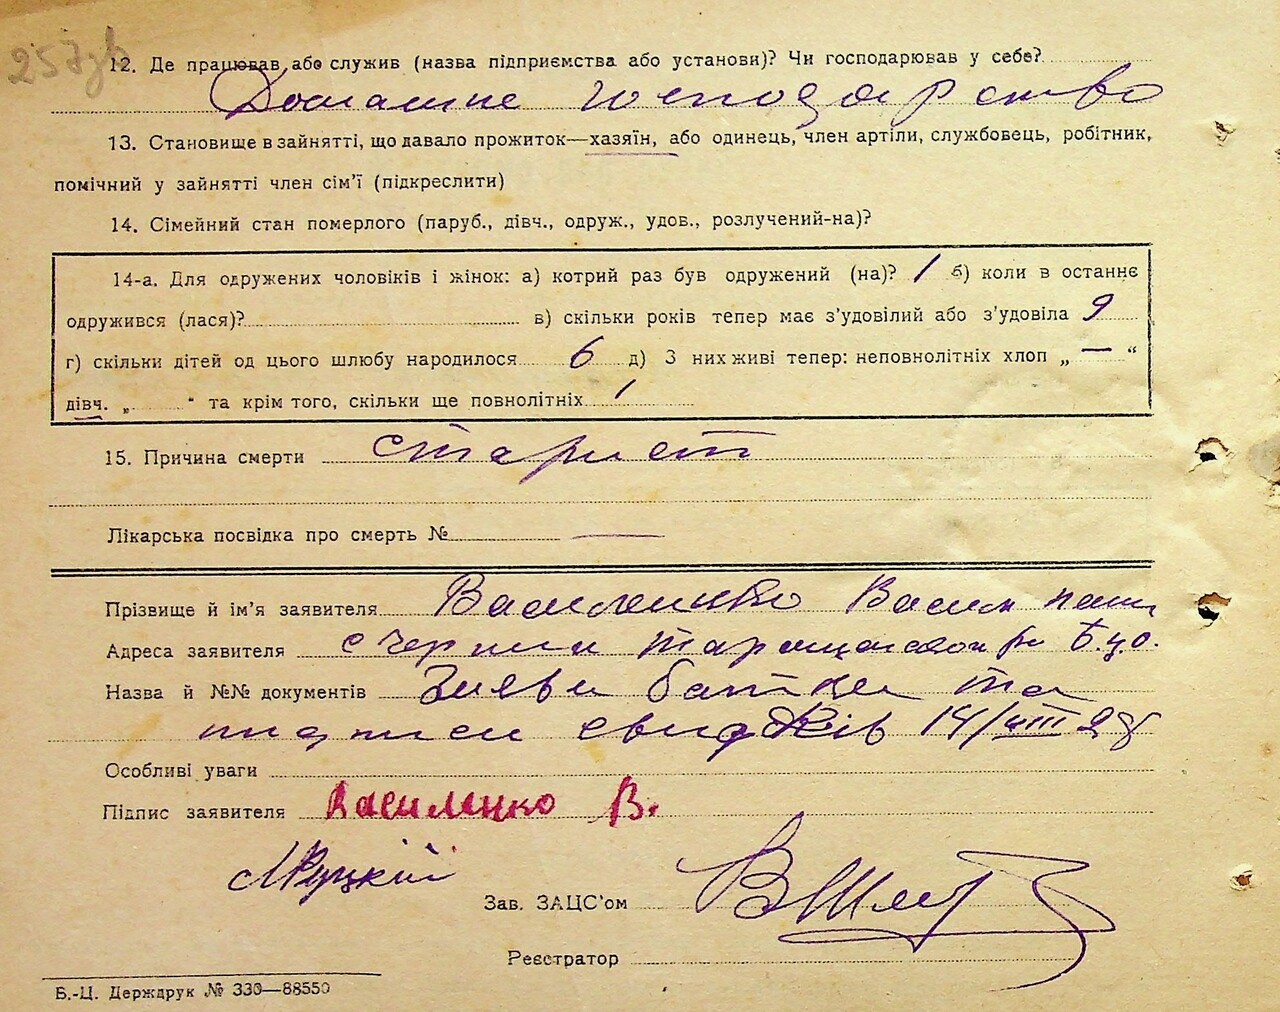 257зв
12. Де працював або служив (назва підприємства або установи)? Чи господарював у себе?
Домашне господарство
13. Становище в зайнятті, що давало прожиток—хазяїн, або одинець, член артіли, службовець, робітник,
помічний у зайнятті член сім'ї (підкреслити)
14. Сімейний стан померлого (паруб., дівч., одруж., удов., розлучений-на)?
14-а. Для одружених чоловіків і жінок: а) котрий раз був одружений (на)? 1 б) коли в останнє
одружився (лася)? в) скільки років тепер має з'удовілий або з'удовіла 9
г) скільки дітей од цього шлюбу народилося 6 д) З них живі тепер: неповнолітніх хлоп „ — “
дівч. „ “ та крім того, скільки ще повнолітніх 1
15. Причина смерти старист
Лікарська посвідка про смерть № —
Прізвище й ім'я заявителя Василенко Васил
Адреса заявителя с Черпин Таращанского р Б.Ц.О.
Назва й №№ документів Заяви батька та
подписи свидків 14/VIII 28
Особливі уваги
Підпис заявителя Василенко В.
Зав. ЗАЦС'ом
Реєстратор
Б.-Ц. Держдрук № 330—88550